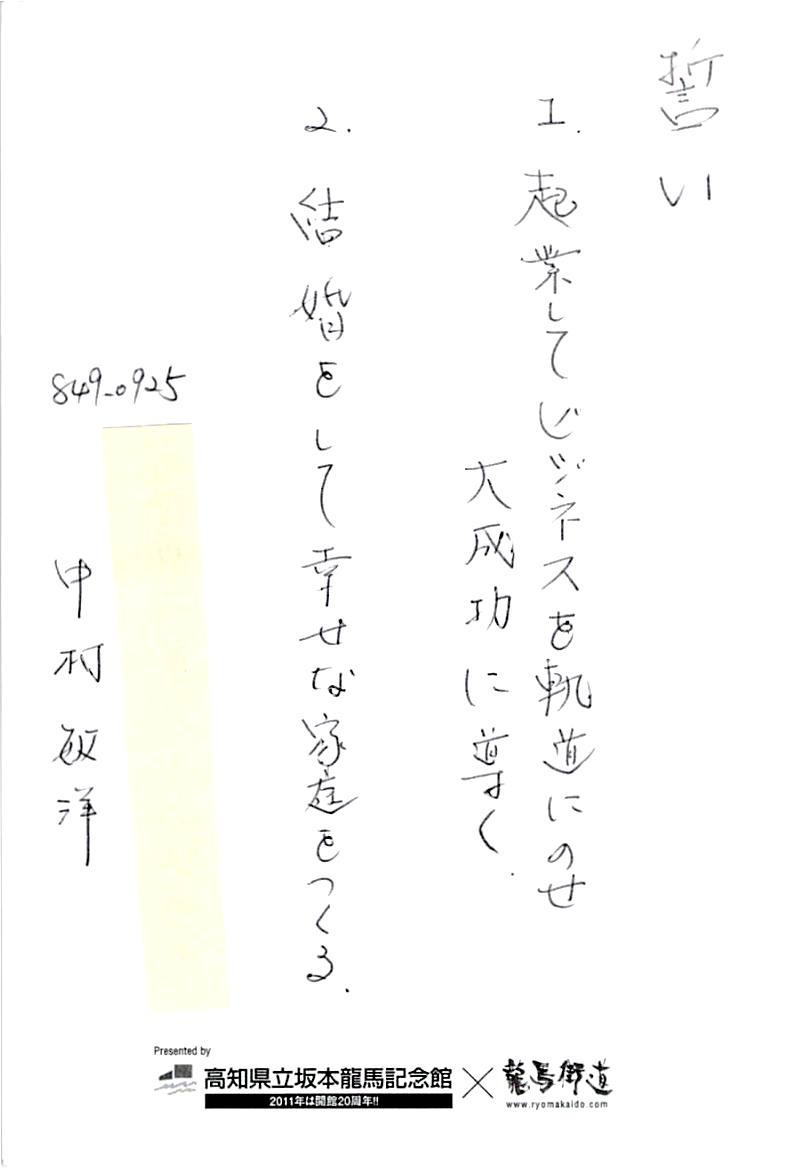 誓い
1. 起業してビジネスを軌道にのせ
大成功に導く.
2. 結婚をして幸せな家庭をつくる.
849-0925
中村敏洋
Presented by
高知県立坂本龍馬記念館
2011年は開館20周年!!
×
龍馬街道
www.ryomakaido.com